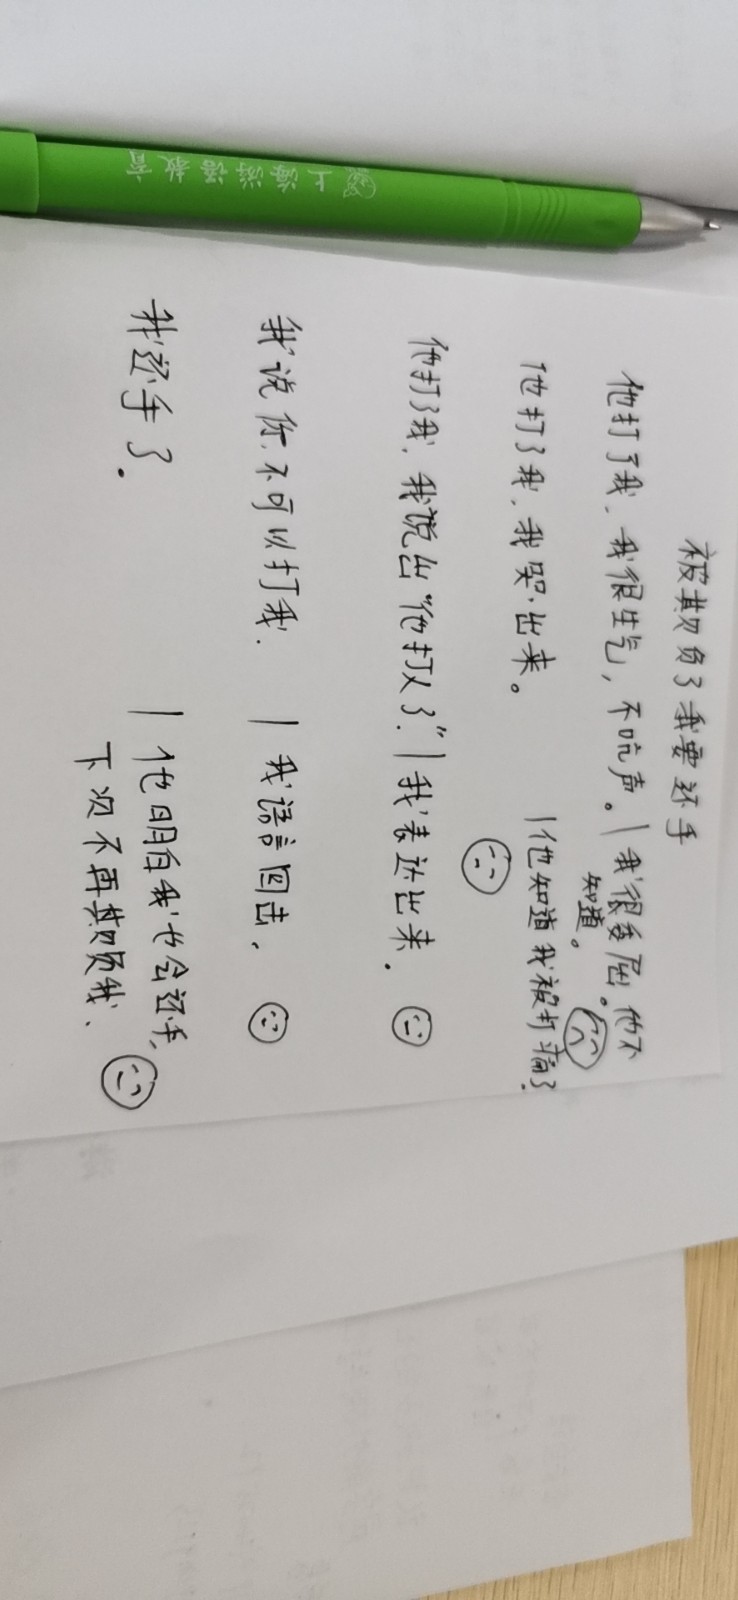 上海游语教育
被欺负了我要还手
他打了我、我很生气，不吭声。| 我很委屈。他不
知道。
他打了我、我哭出来。 | 他知道我被打痛了.
他打了我、我说出“他打人了.” | 我表达出来.
我说你不可以打我. | 我语言回击.
我还手了. | 他明白我也会还手,
下次不再欺负我、